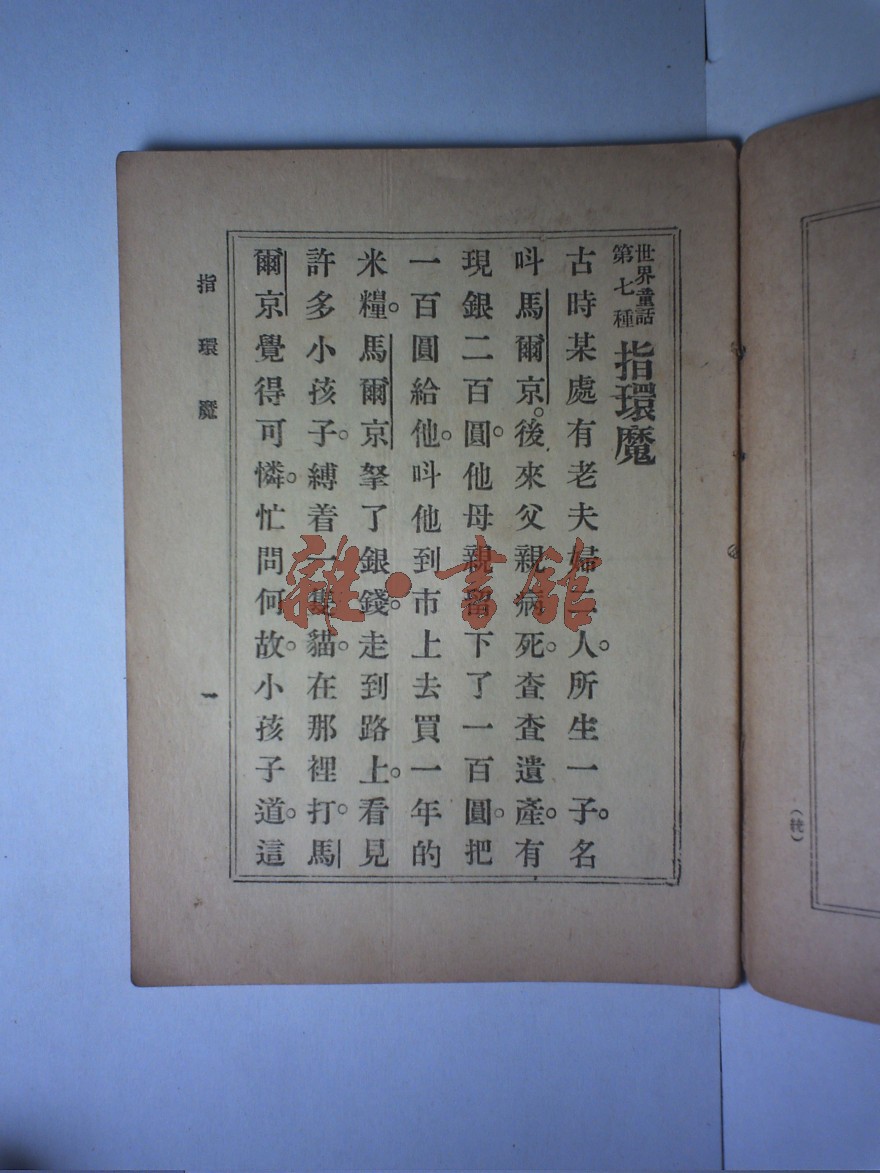 世界童話
第七種
指環魔
古時某處有老夫婦二人。所生一子。名
呌馬爾京。後來父親病死。查查遺產。有
現銀二百圓。他母親留下了一百圓。把
一百圓給他。呌他到市上去買一年的
米糧。馬爾京拏了銀錢。走到路上。看見
許多小孩子。縛着一隻貓。在那裡打。馬
爾京覺得可憐。忙問何故。小孩子道。這
指環魔
一
雜·書館